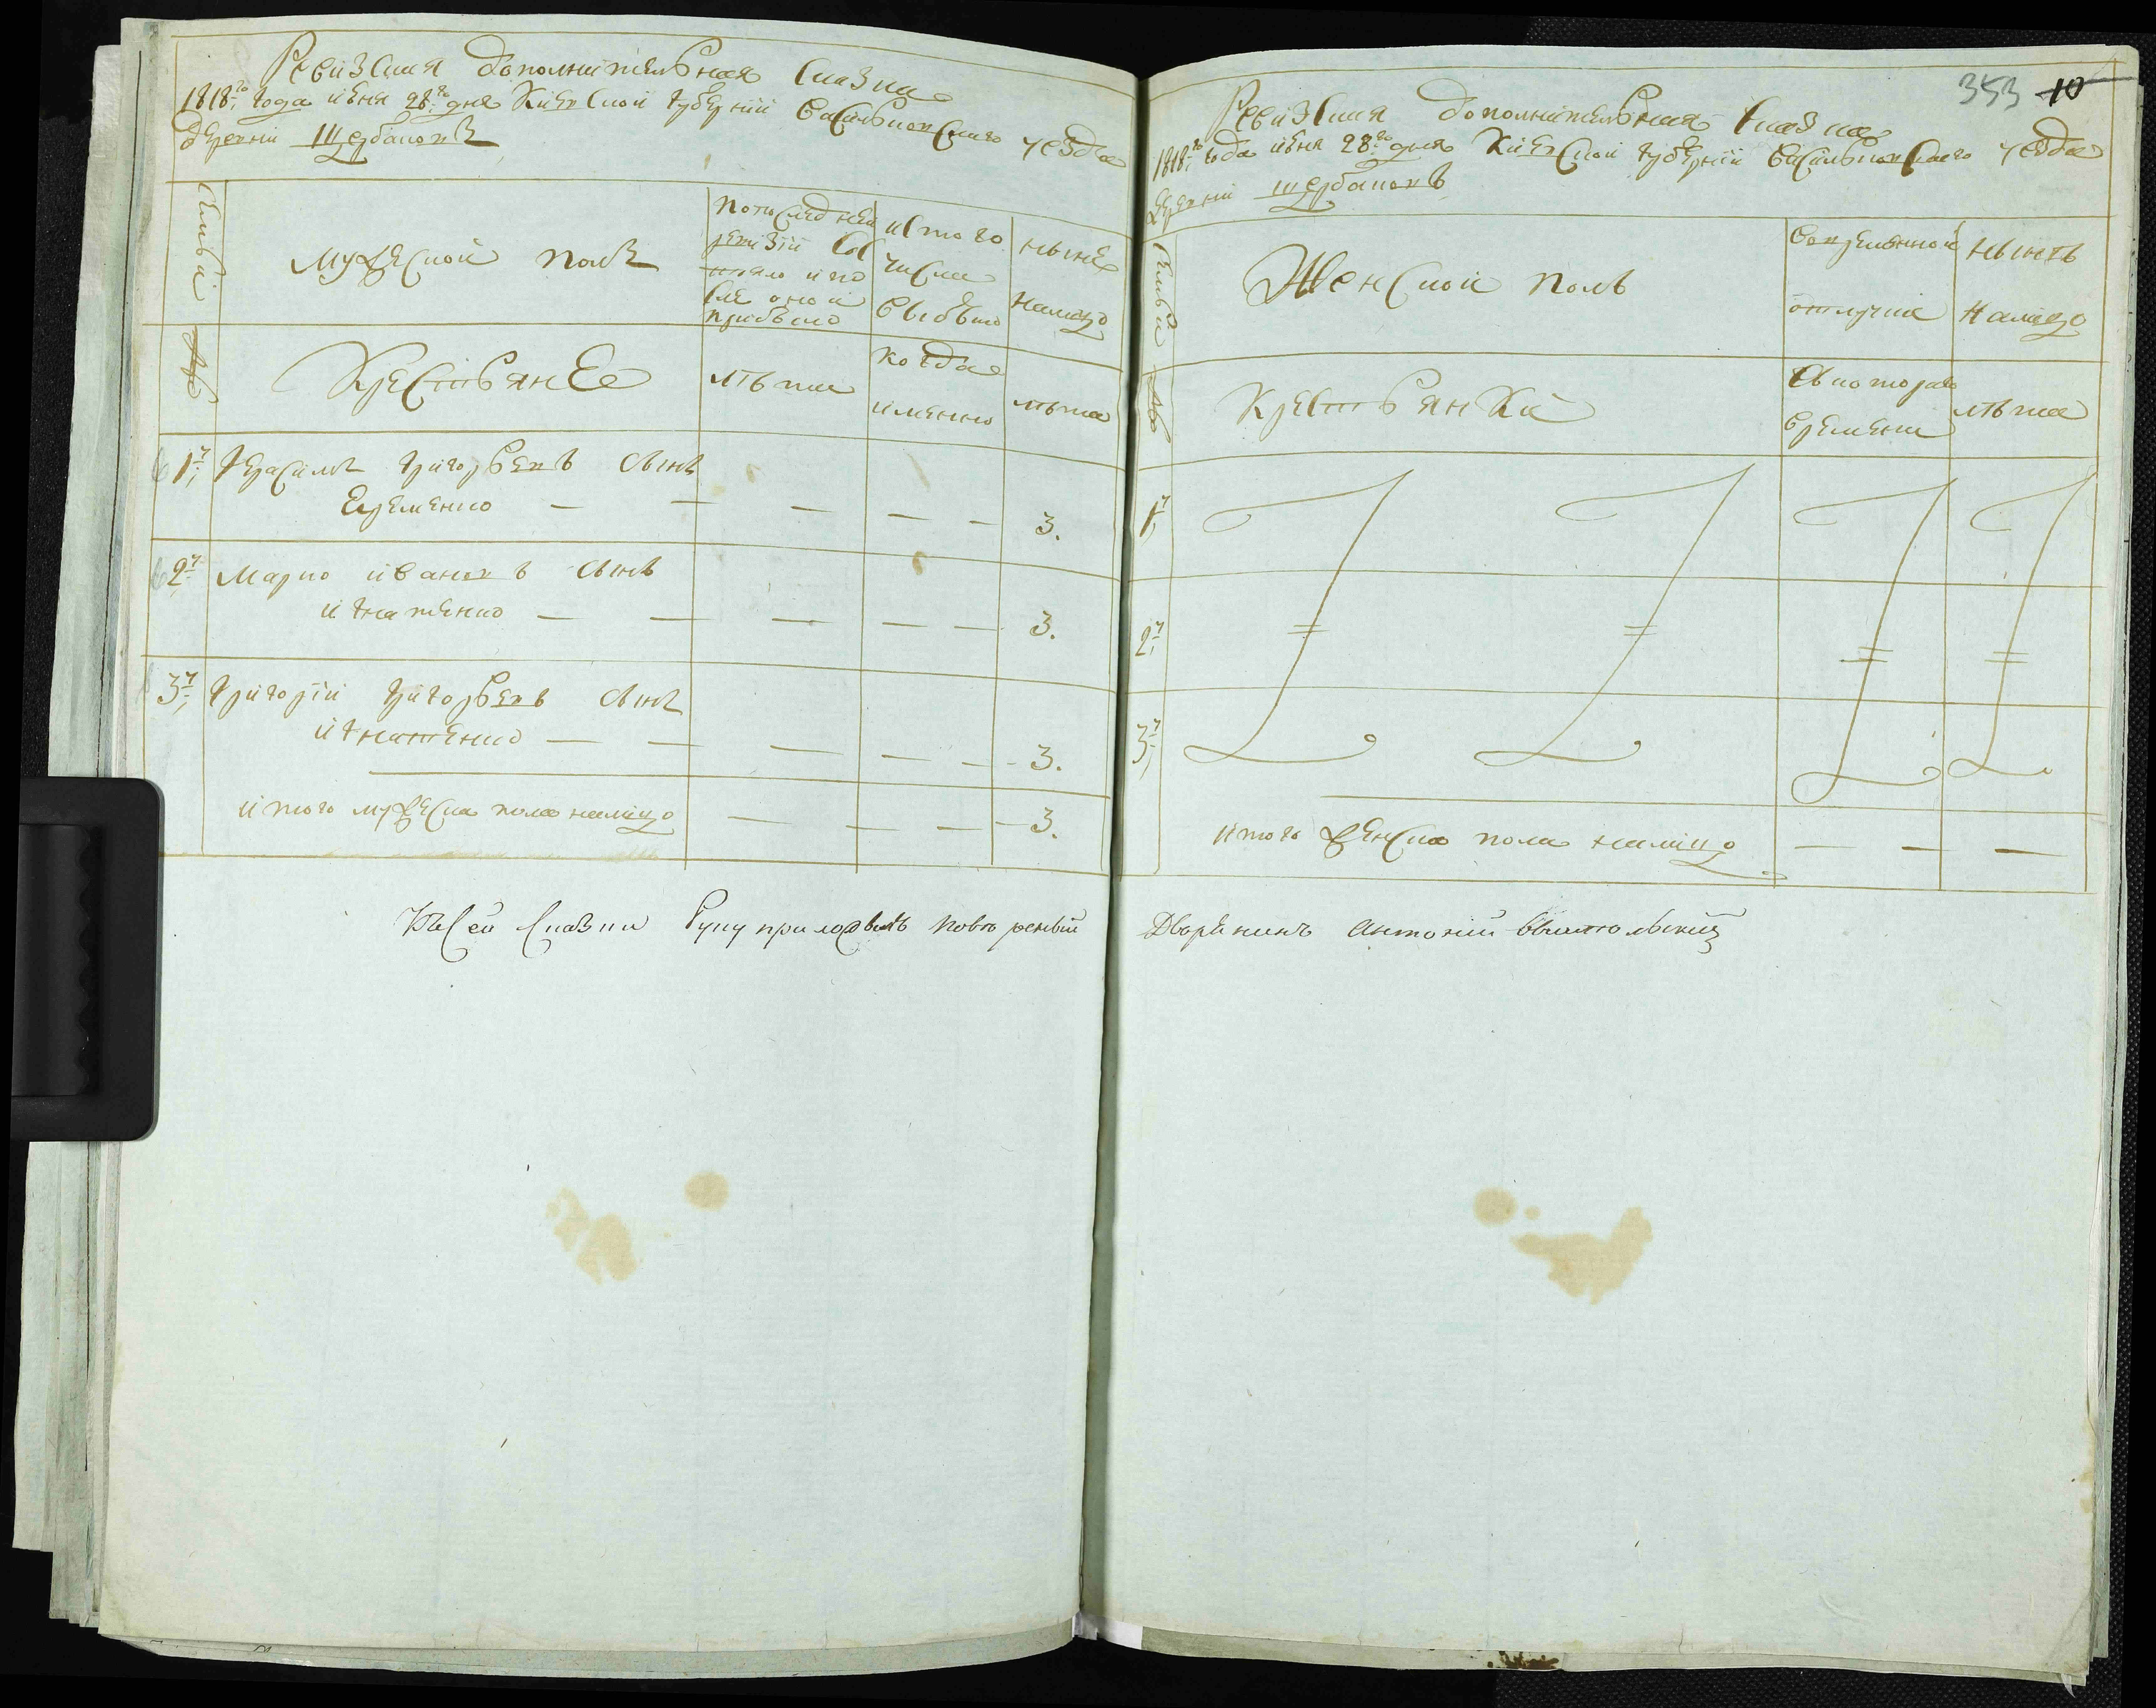 Ревизская дополнительная сказка
1818го года июня 28го дня Киевской губернии Васильковского уезда
деревни Щербаковъ
Семьи
Мужеской полъ
По последней
ревизии сос
тояло и по
сле оной
прибыло
Ис того
числа
выбыло
Ныне
налицо
№
Крестьяне
лѣта
когда
именно
лѣта
1й Герасимъ Григорьевъ сынъ
Еременко — — — — — 3.
2й Марко Ивановъ сынъ
Игнатенко — — — — — 3.
3й Григорий Григорьевъ сынъ
Игнатенко — — — — — 3.
Итого мужеска пола налицо — — — 3.
Къ сей сказки руку приложилъ поверенный
353 10
Ревизская дополнительная сказка
1818го года июня 28го дня Киевской губернии Васильковского уезда
деревни Щербаковъ
Семьи
Женской полъ
Во временной
отлучке
Нынѣ
налицо
№
Крестьянки
С котораго
времени
лѣта
1й
2й
3й
Итого женска пола налицо — — —
Дворянинъ Антоний